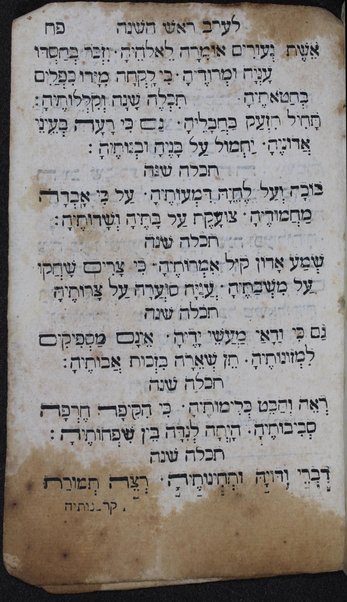 לערב ראש השנה פח
אֵשֶׁת נְעוּרִים אוֹמְרָה לֵאלֹהֶיהָ· יִזְכֹּר בְּחַסְדּוֹ
עָנְיָהּ וּמְרוּדֶיהָ· כִּי לָקְחָה מִיָּדוֹ כִּפְלַיִם
בְּחַטֹּאתֶיהָ תכלה שנה וקללותיה:
תָּחִיל תִּזְעַק בַּחֲבָלֶיהָ· גַם כִּי רָעָה בְּעֵינֵי
אֲדוֹנֶיהָ· יַחְמוֹל עַל בָּנֶיהָ וּבְנוֹתֶיהָ:
תכלה שנה
בּוֹכָה וְעַל לֶחֱיָהּ דִּמְעוֹתֶיהָ· עַל כִּי אָבְדָה
מַחֲמוּדֶיהָ· צוֹעֶקֶת עַל בָּתֶּיהָ וְשָׂדוֹתֶיהָ:
תכלה שנה
שְׁמַע אָדוֹן קוֹל אִמְרוֹתֶיהָ· כִּי צָרִים שָׂחֲקוּ
עַל מִשְׁבַּתֶּיהָ· עֲנִיָּה סוֹעֲרָה עַל צָרוֹתֶיהָ
תכלה שנה
גַם כִּי וַדַּאי מַעֲשֵׂי יָדֶיהָ· אֵינָם מַסְפִּיקִים
לִמְזוֹנוֹתֶיהָ· תֵּן שְׁאֵרָהּ בִּזְכוּת אֲבוֹתֶיהָ:
תכלה שנה
רְאֵה וְהַבֵּט כְּלִימוֹתֶיהָ· כִּי הִקִּיפָהּ חֶרְפָּה
סְבִיבוֹתֶיהָ· הָיְתָה לְנִדָּה בֵּין שִׁפְחוֹתֶיהָ:
תכלה שנה
דִּבְרֵי וִדּוּיָהּ וּתְחִנּוֹתֶיהָ· רְצֵה תְּמוּרַת
קרבנותיה